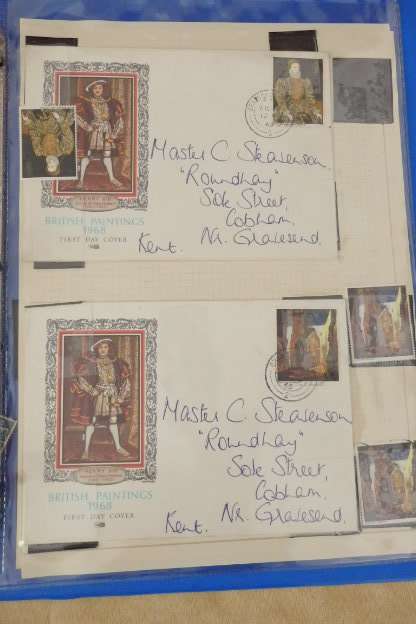 HENRY VIII
BRITISH PAINTINGS
1968
FIRST DAY COVER
Master C Stearenson
"Roundhay"
Sole Street,
Cobham.
Nr. Gravesend.
Kent.
HENRY VIII
BRITISH PAINTINGS
1968
FIRST DAY COVER
Master C. Stearenson
"Roundhay"
Sole Street,
Cobham.
Nr. Gravesend.
Kent.